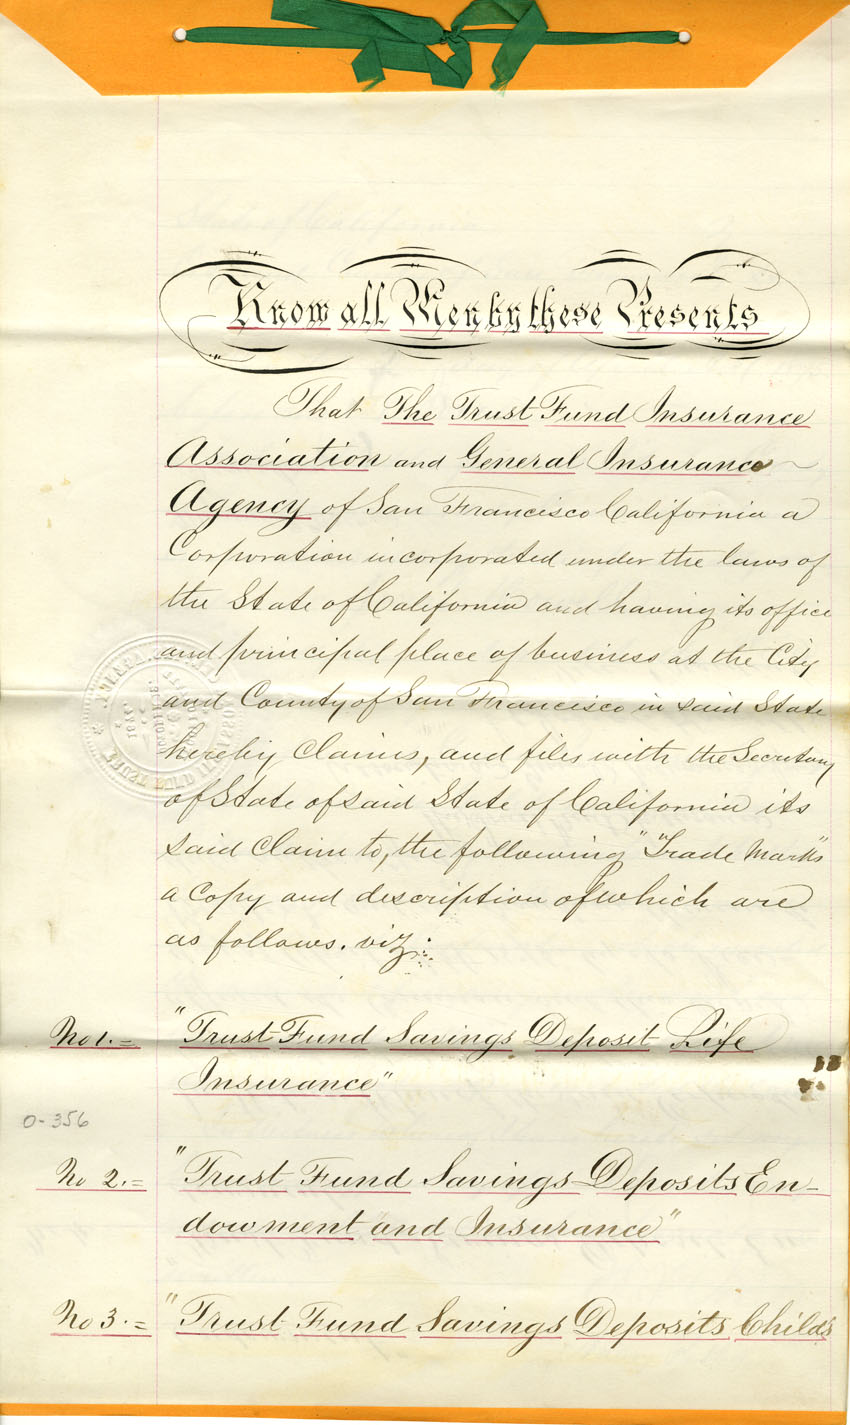 Know all Men by these Presents
That The Trust Fund Insurance
Association and General Insurance
Agency of San Francisco California a
Corporation incorporated under the laws of
the State of California and having its office
and principal place of business at the City
and County of San Francisco in said State
hereby Claims, and files with the Secretary
of State of said State of California its
said Claim to, the following "Trade Marks"
a Copy and description of which are
as follows. viz:
No 1. = "Trust Fund Savings Deposit Life
Insurance"
0-356
No 2. = "Trust Fund Savings Deposits En-
dowment and Insurance"
No 3. = "Trust Fund Savings Deposits Childs